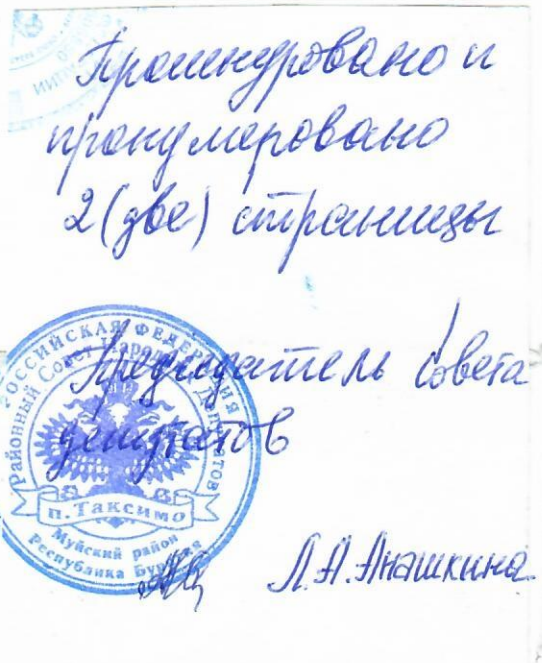 Прошнуровано и
пронумеровано
2 (две) страницы
Председатель Совета
депутатов
Л.А. Анашкина
РОССИЙСКАЯ ФЕДЕРАЦИЯ
Районный Совет Народных Депутатов
п. Таксимо
Муйский район
Республика Бурятия